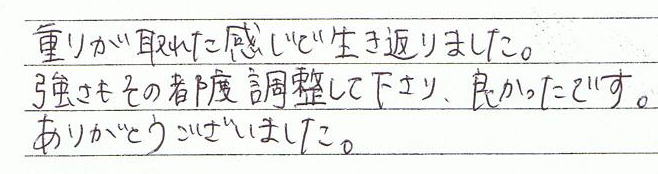 重りが取れた感じで生き返りました。
強さもその都度調整して下さり、良かったです。
ありがとうございました。